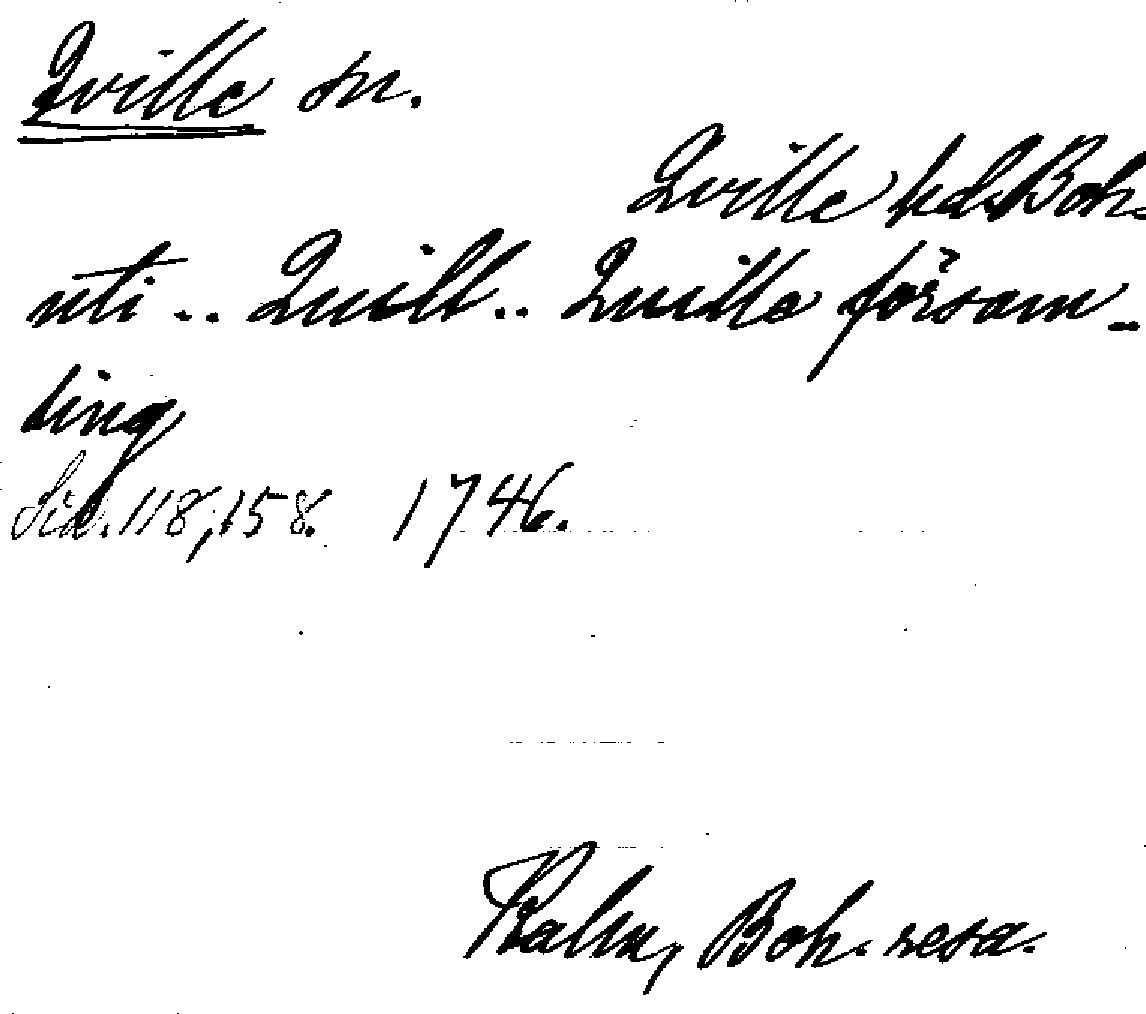 Qville sn.
Qville hd. Boh.
uti .. Quill .. Quille försam-
ling
Sid. 118, 158. 1746.
Kalm, Boh. resa.